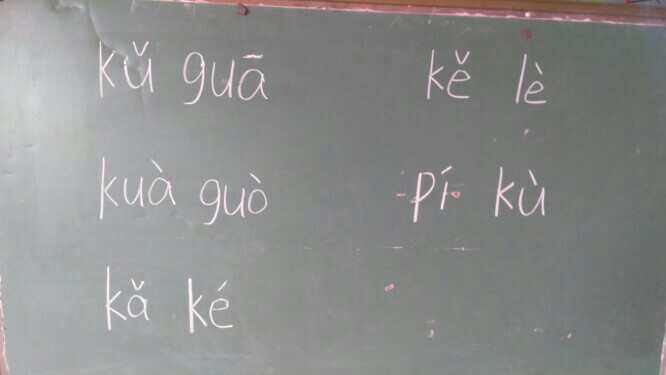 kǔ guā kě lè
kuà guò pí kù
kǎ ké